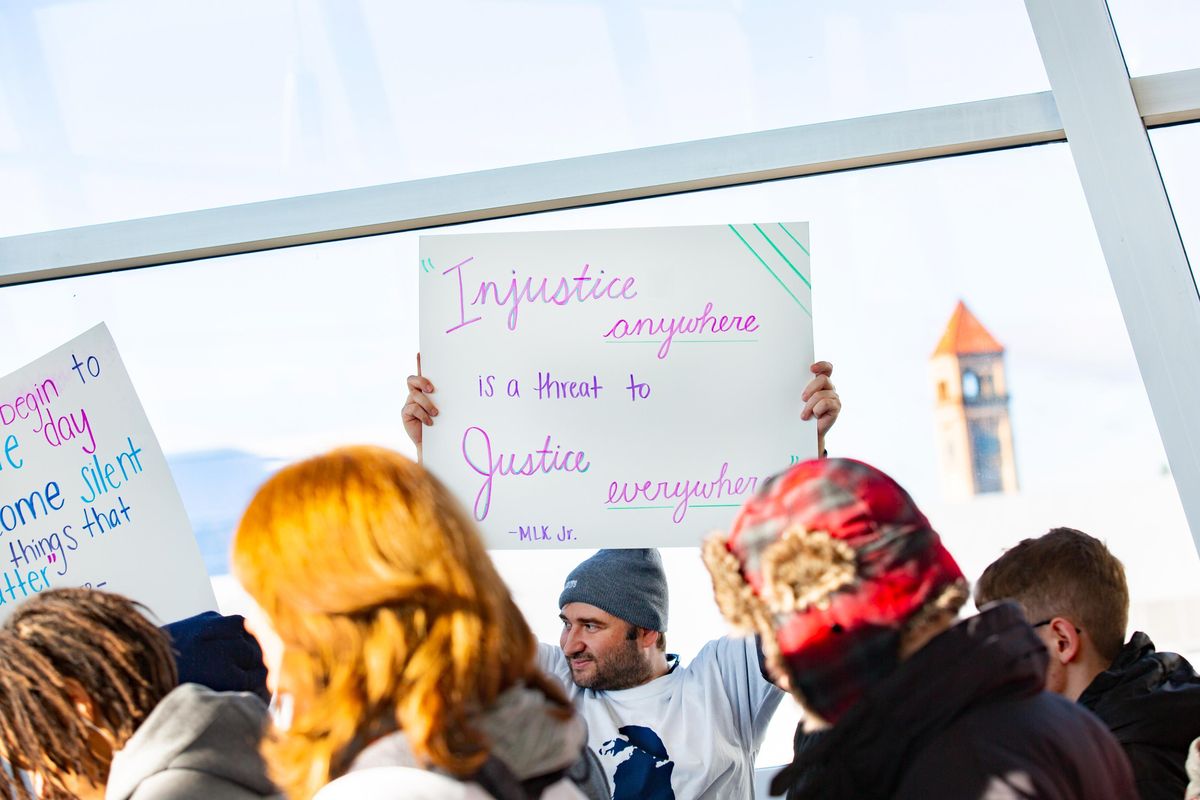 begin to
e day
ome silent
things that
atter"
"Injustice
anywhere
is a threat to
Justice
everywher
-MLK Jr.